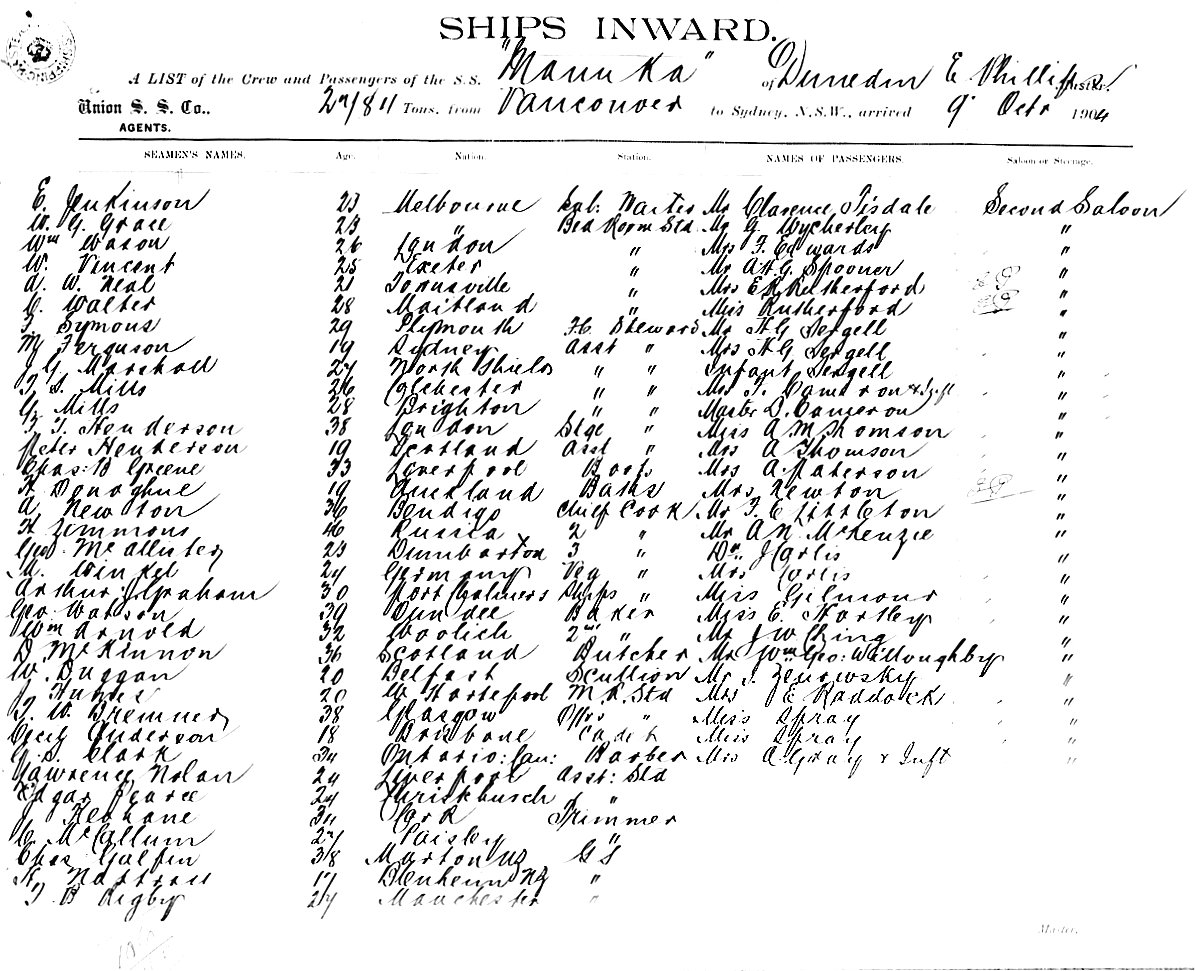 SHIPS INWARD.
A LIST of the Crew and Passengers of the S.S. "Manuka" of Dunedin E Phillips, Master
Union S. S. Co., 2784 Tons, from Vancouver to Sydney, N.S.W., arrived 9 Octr 1904
AGENTS.
SEAMEN'S NAMES. Age. Nation. Station. NAMES OF PASSENGERS. Saloon or Steerage.
E. Jenkinson 23 Melbourne Waiter Mr Clarence Tisdale Second Saloon
W. G. Grace 23 " Bed Room Std Mr G. Wycherley "
Wm Wason 26 London " Mrs F. Edwards "
W. Vincent 25 Exeter " Mr A H G Spooner "
A. W. Neal 21 Townsville " Mrs E R Rutherford "
C. Walter 28 Maitland " Miss Rutherford "
T. Symons 29 Plymouth Steward Mr H G Sergell "
M Ferguson 19 Sydney Asst " Mrs H G Sergell "
J G Marshall 27 North Shields " " Infant Sergell "
T. S. Mills 26 Colchester " " Mrs T. Cameron & Inft "
G. Mills 28 Brighton " " Master D. Cameron "
T. T. Henderson 38 London Stge " Miss A M Thomson "
Peter Henderson 19 Scotland Asst " Mrs A Thomson "
Chas: B Greene 33 Liverpool Boots Mrs A Paterson "
Donoghue 19 Auckland Baths Mrs Newton "
A. Newton 36 Bendigo Chief Cook Mr T. E Littleton "
H Zimmons 46 Russia 2 " Mr A N. McKenzie "
Geo. McAllister 23 Dumbarton 3 " Dr J Corlis "
M. Winkel 24 Germany Veg " Mrs Corlis "
Arthur J Graham 30 Port Chalmers Ships " Miss Gilmour "
Geo. Watson 39 Dundee Baker Miss E. Hartley "
Wm Arnold 32 Woolich 2nd " Mr J W Ching "
D. McKinnon 36 Scotland Butcher Mr Wm Geo: Willoughby "
W. Duggan 20 Belfast Scullion Mr Zenowsky "
J. Hughes 20 W Hartlepool M. R. Std Mrs E Raddock "
T. W. Bremner 38 Glasgow Offrs " Miss Spray "
Cecil Anderson 18 Brisbane Cadet Miss Spray "
G. S. Clark 34 Ontario: Can: Barber Mrs A Gray & Inft "
Lawrence Nolan 24 Liverpool Asst: Std
Edgar Pearce 24 "
J Keohane 34 Cork Trimmer
C. McCallum 27 Paisley "
Chas Galpin 38 Marton NZ G S
N. Nattrass 17 Blenheim NZ "
T. B Rigby 24 Manchester "
Master.